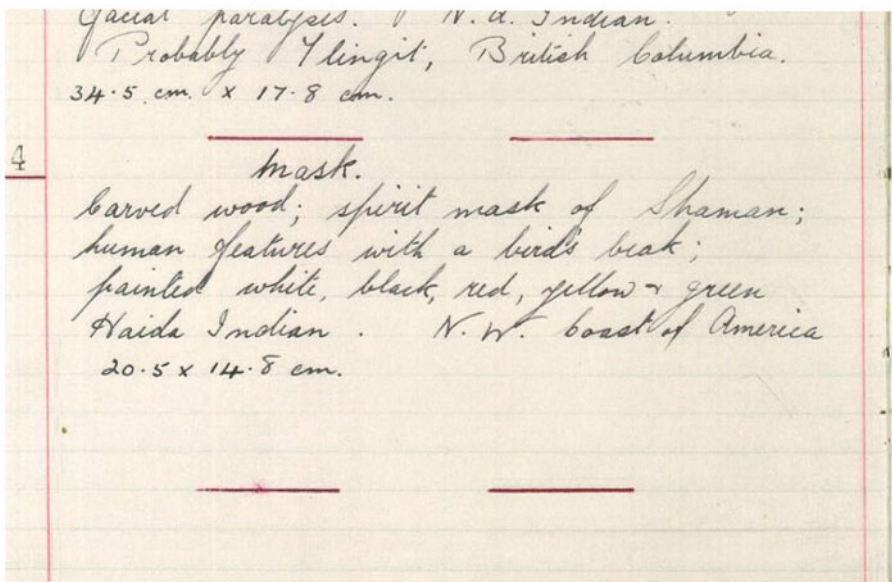 facial paralysis. N. A. Indian.
Probably Tlingit, British Columbia.
34·5 cm. x 17·8 cm.
4
Mask.
Carved wood; spirit mask of Shaman;
human features with a bird's beak;
painted white, black, red, yellow & green
Haida Indian. N. W. Coast of America
20·5 x 14·8 cm.